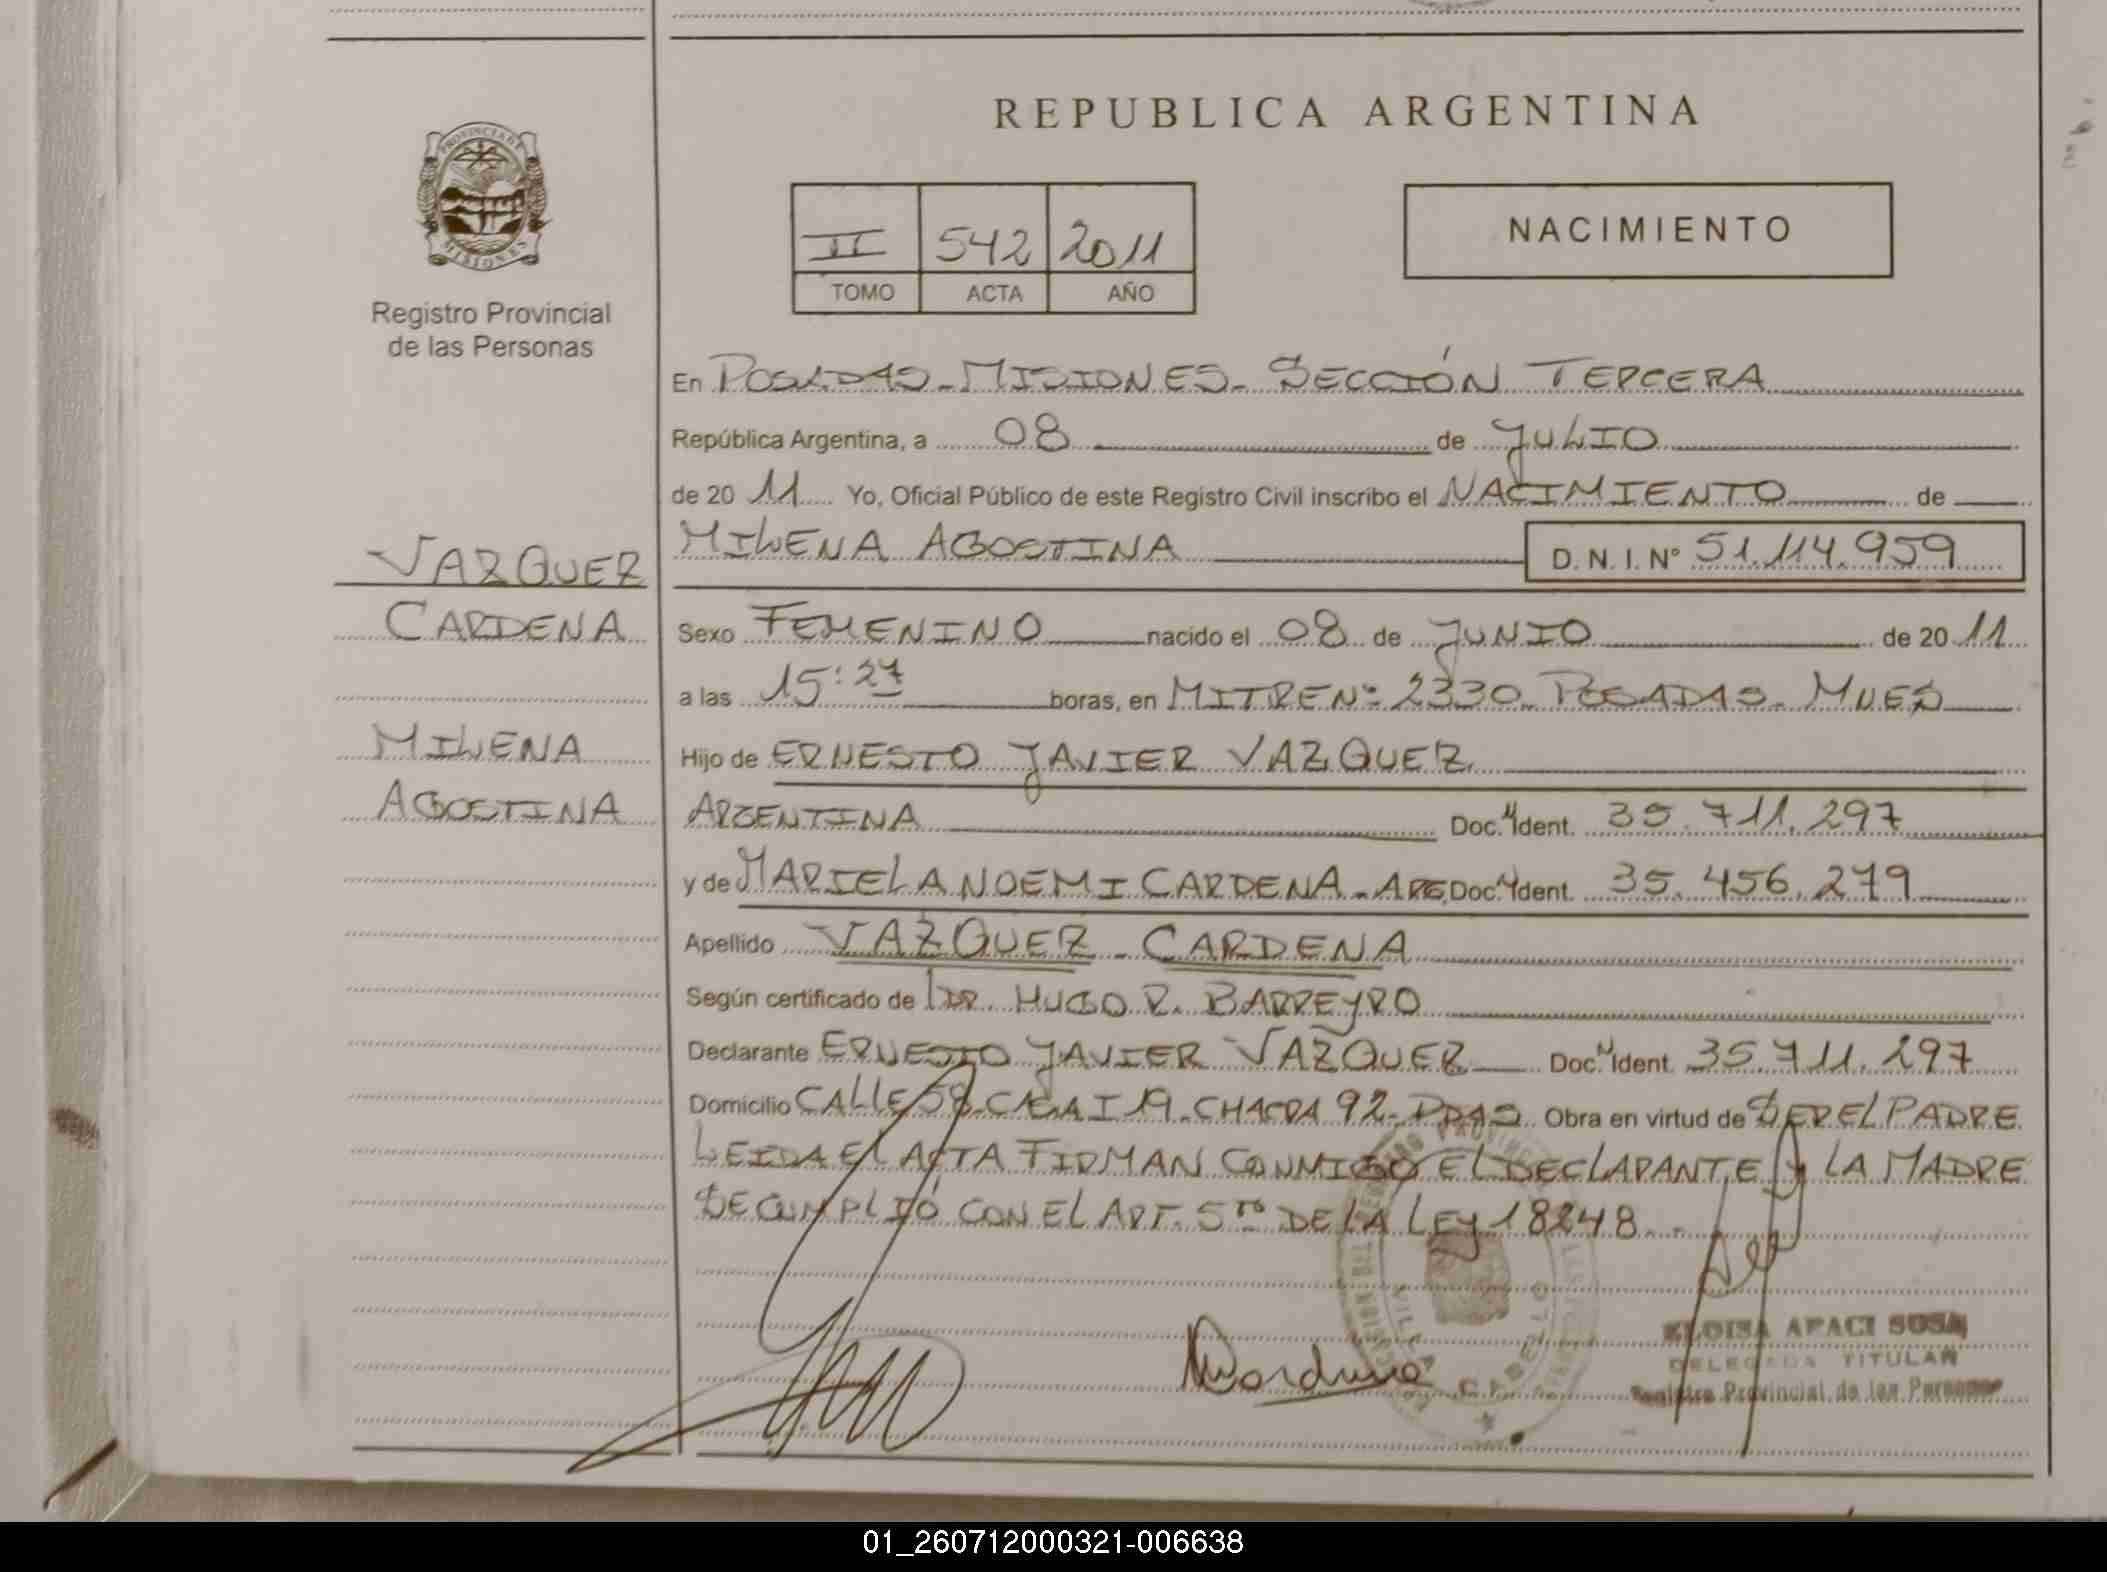 REPUBLICA ARGENTINA
PROVINCIA DE
MISIONES
Registro Provincial
de las Personas
II 542 2011
TOMO ACTA AÑO
NACIMIENTO
En POSADAS-MISIONES-SECCIÓN TERCERA
República Argentina, a 08 de JULIO
de 20 11 Yo, Oficial Público de este Registro Civil inscribo el NACIMIENTO de
MILENA AGOSTINA D. N. I. Nº 51.114.959
VAZQUEZ
CARDENA
MILENA
AGOSTINA
Sexo FEMENINO nacido el 08 de JUNIO de 20 11
a las 15:27 horas, en MITRE Nº 2330-POSADAS-MNES
Hijo de ERNESTO JAVIER VAZQUEZ
ARGENTINA Doc. Ident. 35.711.297
y de MARIELA NOEMI CARDENA-ARG Doc. Ident. 35.456.279
Apellido VAZQUEZ - CARDENA
Según certificado de DR. HUGO R. BARREYRO
Declarante ERNESTO JAVIER VAZQUEZ Doc. Ident. 35.711.297
Domicilio CALLE 58-CASA I 19-CHACRA 92-PDAS Obra en virtud de SER EL PADRE
LEIDA EL ACTA FIRMAN CONMIGO EL DECLARANTE Y LA MADRE
SE CUMPLIÓ CON EL ART. 5to DE LA LEY 18248
ELOISA APACI SOSA
DELEGADA TITULAR
Registro Provincial de las Personas
01_260712000321-006638